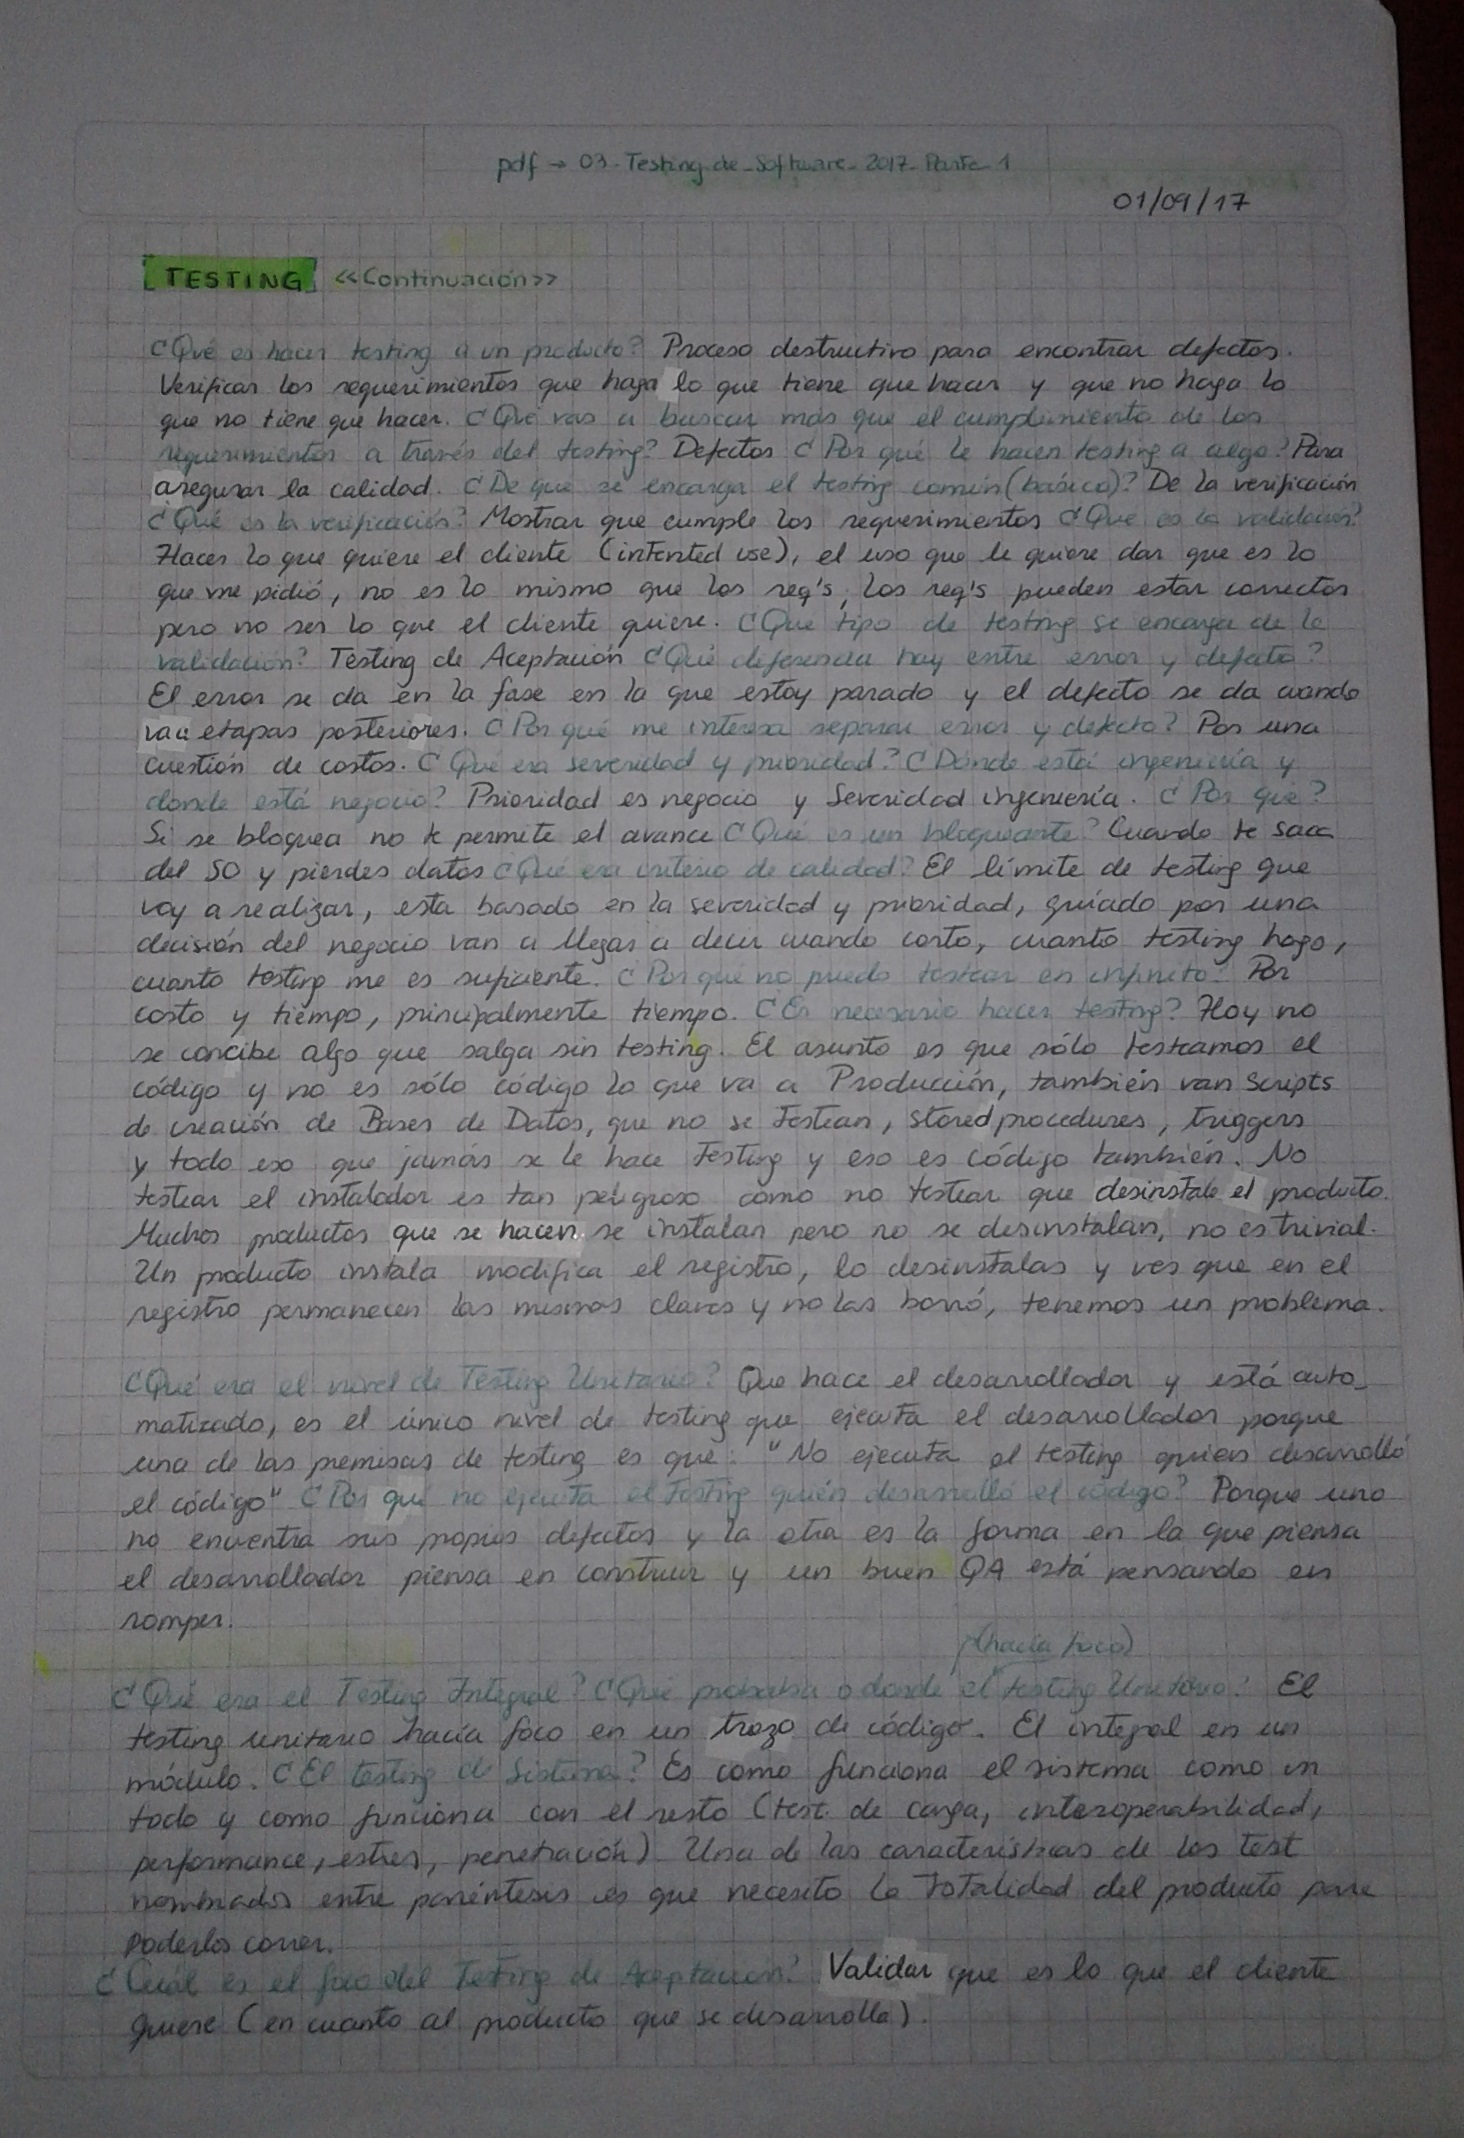 pdf → 03-Testing-de-Software-2017-Parte 1
01/09/17
[TESTING] <<Continuación>>
¿Qué es hacer testing a un producto? Proceso destructivo para encontrar defectos.
Verificar los requerimientos que haga lo que tiene que hacer y que no haga lo
que no tiene que hacer. ¿Qué vas a buscar más que el cumplimiento de los
requerimientos a través del testing? Defectos ¿Por qué le hacen testing a algo? Para
asegurar la calidad. ¿De que se encarga el testing común (básico)? De la verificación
¿Qué es la verificación? Mostrar que cumple los requerimientos ¿Qué es la validación?
Hacer lo que quiere el cliente (intented use), el uso que le quiere dar que es lo
que me pidió, no es lo mismo que los req's, los req's pueden estar correctos
pero no ser lo que el cliente quiere. ¿Que tipo de testing se encarga de la
validación? Testing de Aceptación ¿Qué diferencia hay entre error y defecto?
El error se da en la fase en la que estoy parado y el defecto se da cuando
va a etapas posteriores. ¿Por qué me interesa separar error y defecto? Por una
cuestión de costos. ¿Qué era severidad y prioridad? ¿Dónde está ingeniería y
donde está negocio? Prioridad es negocio y Severidad ingeniería. ¿Por que?
Si se bloquea no te permite el avance ¿Qué es un bloqueante? Cuando te saca
del SO y pierdes datos ¿Qué era criterio de calidad? El límite de testing que
voy a realizar, esta basado en la severidad y prioridad, guiado por una
decisión del negocio van a llegar a decir cuando corto, cuanto testing hago,
cuanto testing me es suficiente. ¿Por qué no puedo testear en infinito? Por
costo y tiempo, principalmente tiempo. ¿Es necesario hacer testing? Hoy no
se concibe algo que salga sin testing. El asunto es que sólo testeamos el
código y no es sólo código lo que va a Producción, también van scripts
de creación de Bases de Datos, que no se testean, stored procedures, triggers
y todo eso que jamás se le hace testing y eso es código también. No
testear el instalador es tan peligroso como no testear que desinstale el producto.
Muchos productos que se hacen se instalan pero no se desinstalan, no es trivial.
Un producto instala modifica el registro, lo desinstalas y ves que en el
registro permanecen las mismas claves y no las borró, tenemos un problema.
¿Qué era el nivel de Testing Unitario? Que hace el desarrollador y está auto_
matizado, es el único nivel de testing que ejecuta el desarrollador porque
una de las premisas de testing es que: "No ejecuta el testing quien desarrolló
el código" ¿Por qué no ejecuta el Testing quién desarrolló el código? Porque uno
no encuentra sus propios defectos y la otra es la forma en la que piensa
el desarrollador piensa en construir y un buen QA está pensando en
romper.
(hacía foco)
¿Qué era el Testing Integral? ¿Qué probaba o donde el testing Unitario? El
testing unitario hacía foco en un trozo de código. El integral en un
módulo. ¿El testing de Sistema? Es como funciona el sistema como un
todo y como funciona con el resto (test. de carga, interoperabilidad,
performance, estres, penetración). Una de las características de los test
nombrados entre paréntesis es que necesito la totalidad del producto para
poderlos correr.
¿Cuál es el foco del Testing de Aceptación? Validar que es lo que el cliente
quiere (en cuanto al producto que se desarrolla).